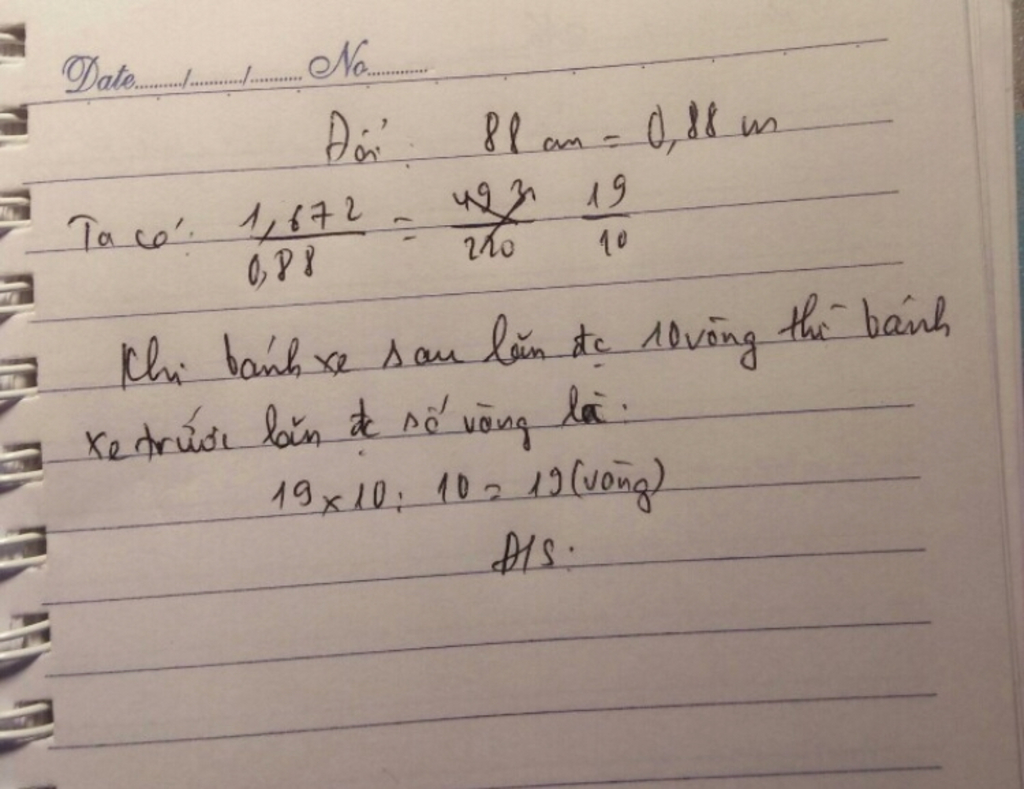 Date......../......../........ No..........
Đổi: 88 cm = 0,88 m
Ta có: 1,672/0,88 = 19/10
Khi bánh xe sau lăn đc 10 vòng thì bánh
xe trước lăn đc số vòng là:
19 x 10 : 10 = 19 (vòng)
Đ/S: